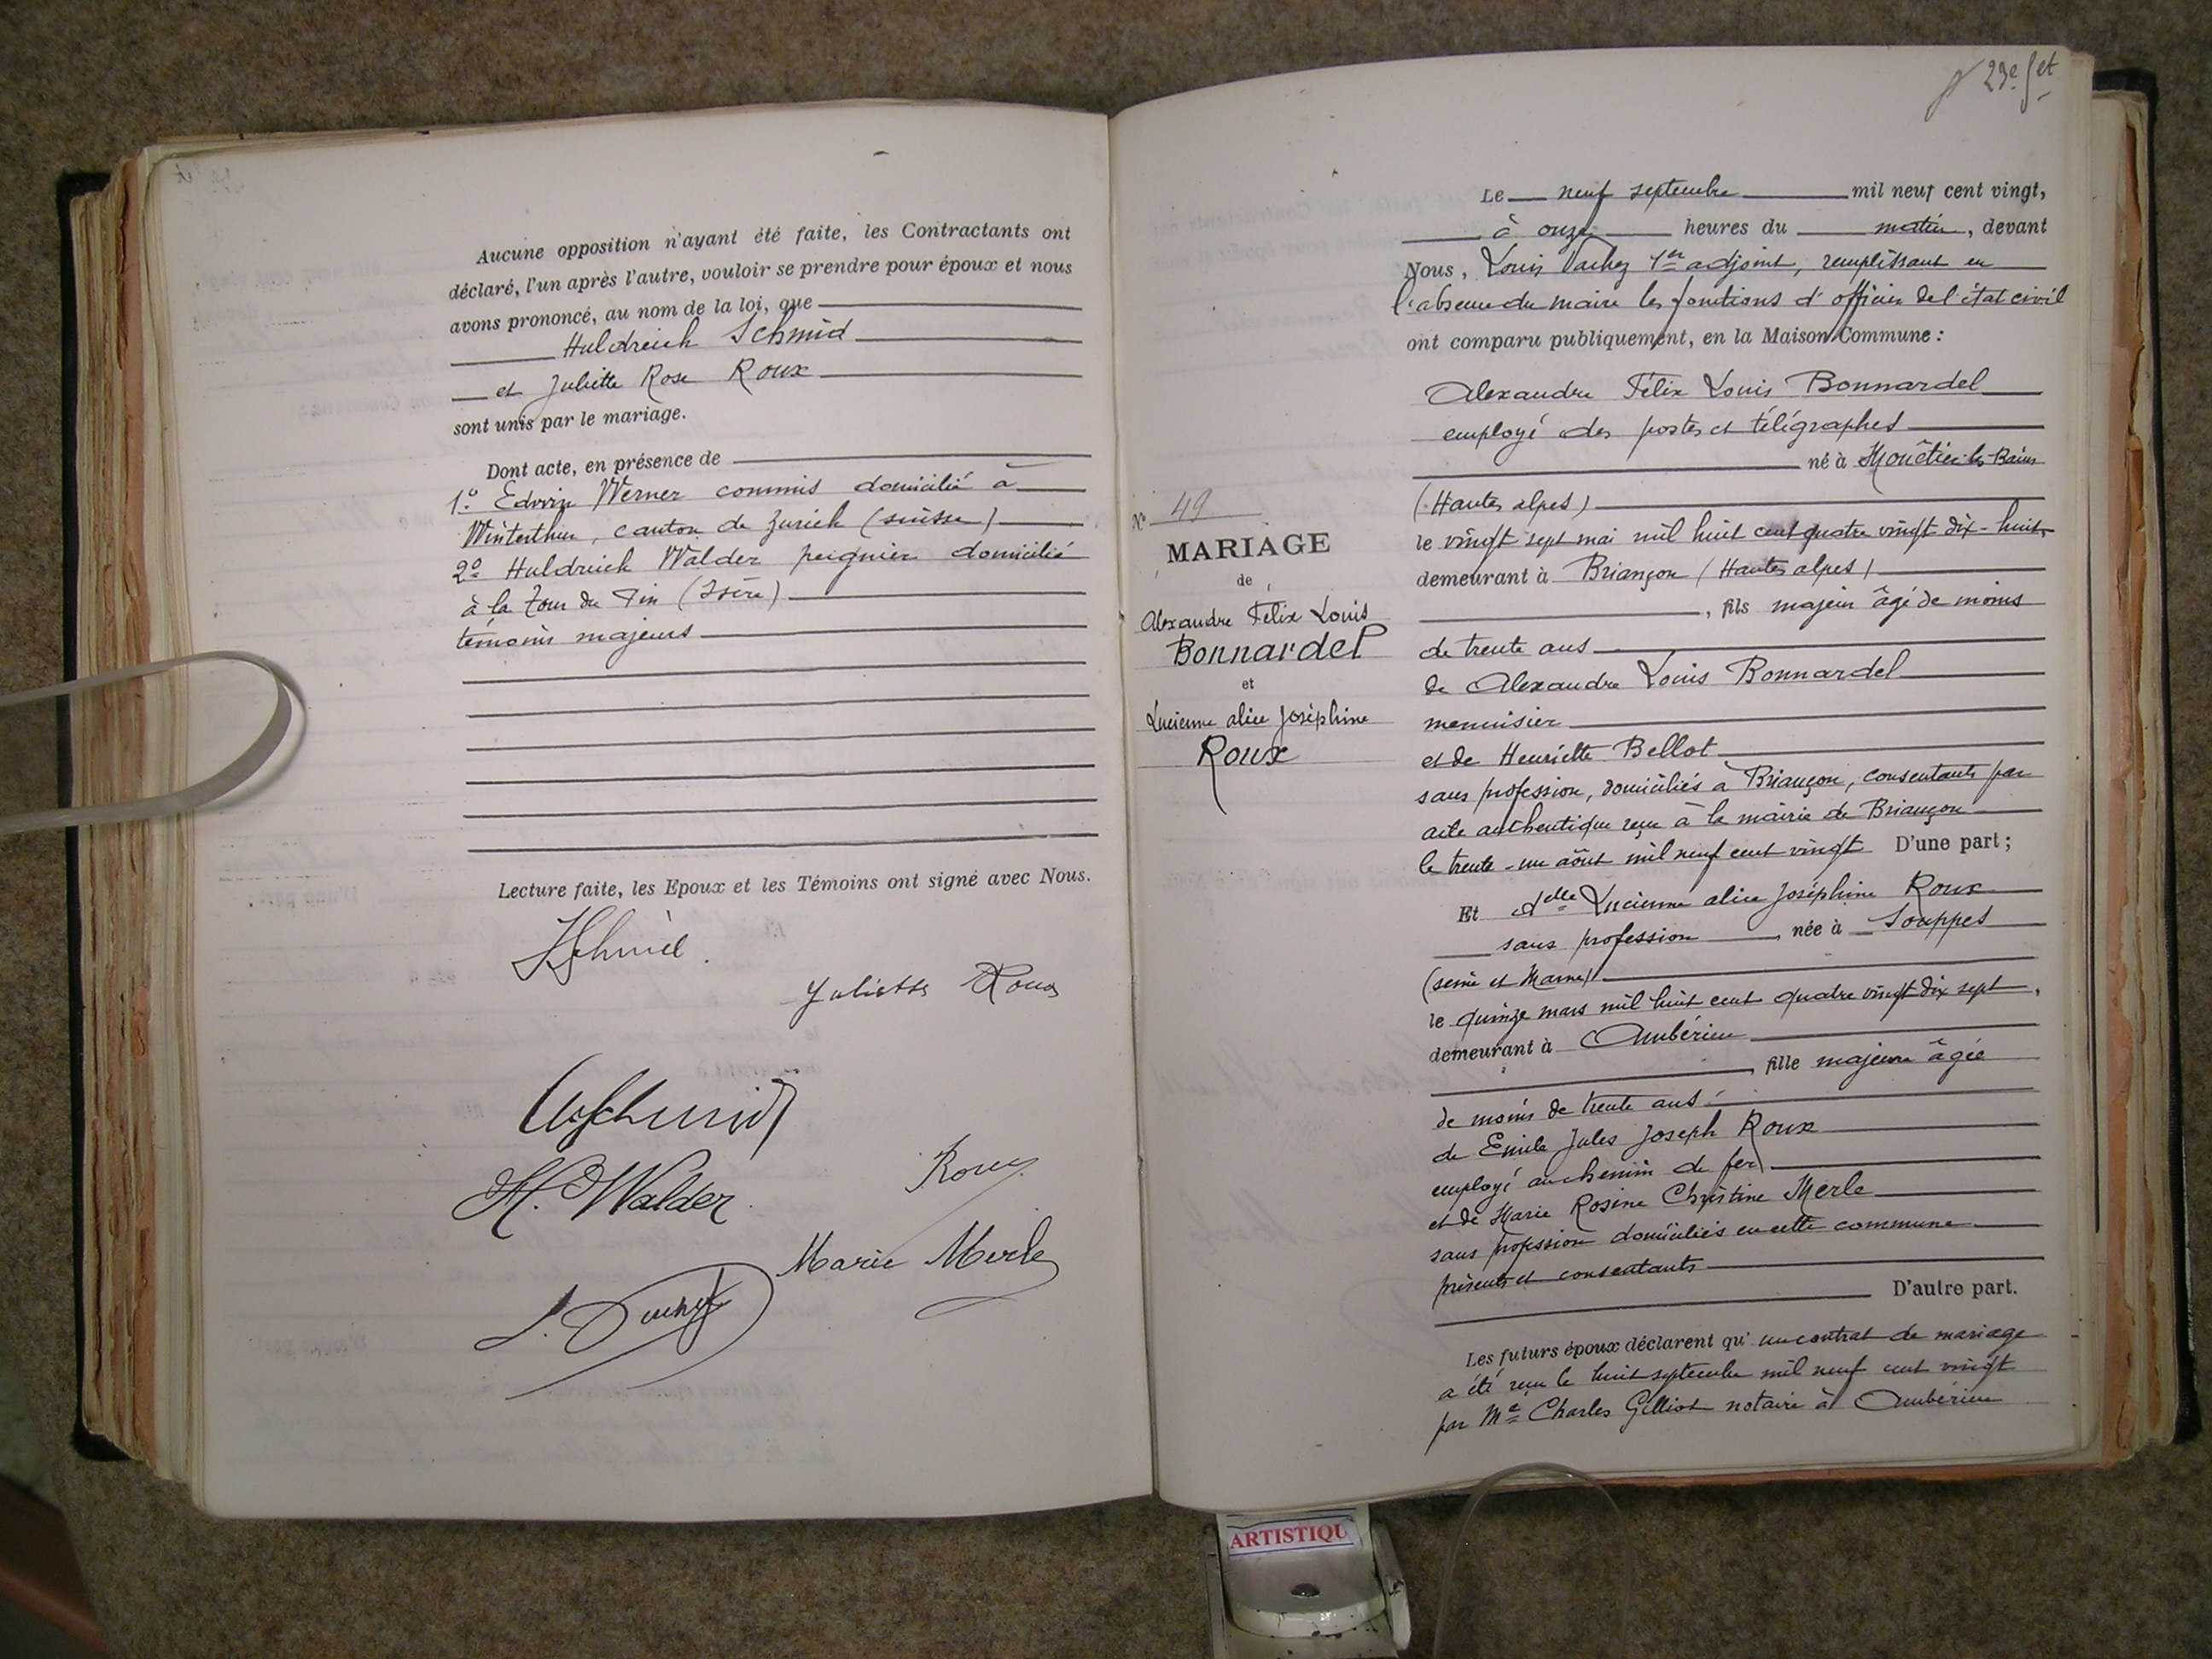 Aucune opposition n'ayant été faite, les Contractants ont
déclaré, l'un après l'autre, vouloir se prendre pour époux et nous
avons prononcé, au nom de la loi, que
Huldreich Schmid
et Juliette Rose Roux
sont unis par le mariage.
Dont acte, en présence de
1º Edwin Werner commis domicilié à
Winterthur, canton de Zurich (suisse)
2º Huldreich Walder peignier domicilié
à la Tour du Pin (Isère)
témoins majeurs
Lecture faite, les Epoux et les Témoins ont signé avec Nous.
Juliette Roux
H. Walder
Roux
Marie Merle
23e fet
Nº 49
MARIAGE
de
Alexandre Félix Louis
Bonnardel
et
Lucienne alice Joséphine
Roux
Le neuf septembre mil neuf cent vingt,
à onze heures du matin, devant
Nous, Louis 1er adjoint, remplissant en
l'absence du maire les fonctions d'officier de l'état civil
ont comparu publiquement, en la Maison Commune :
Alexandre Félix Louis Bonnardel
employé des postes et télégraphes
né à Monêtier-les-Bains
(Hautes alpes)
le vingt sept mai mil huit cent quatre vingt dix-huit,
demeurant à Briançon (Hautes alpes)
, fils majeur âgé de moins
de trente ans
de Alexandre Louis Bonnardel
menuisier
et de Henriette Bellot
sans profession, domiciliés à Briançon, consentants par
acte authentique reçu à la mairie de Briançon
le trente-un août mil neuf cent vingt D'une part ;
Et Delle Lucienne alice Joséphine Roux
sans profession, née à Souppes
(seine et Marne)
le quinze mars mil huit cent quatre vingt dix sept,
demeurant à Ambérieu
, fille majeure âgée
de moins de trente ans
de Emile Jules Joseph Roux
employé au chemin de fer
et de Marie Rosine Christine Merle
sans profession domiciliés en cette commune
présents et consentants
D'autre part.
Les futurs époux déclarent qu'un contrat de mariage
a été reçu le huit septembre mil neuf cent vingt
par Me Charles Gilliot notaire à Ambérieu
ARTISTIQU